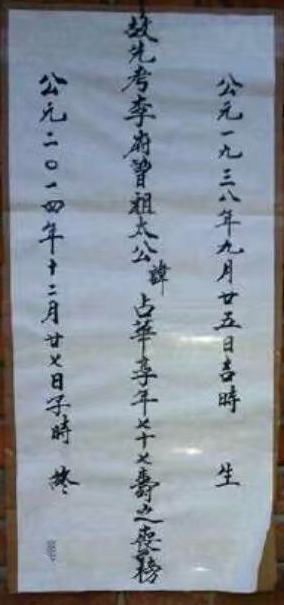 公元一九三八年九月廿五日吉時 生
故先考李府曾祖太公諱占華享年七十七壽之喪榜
公元二〇一四年十二月廿七日子時 終